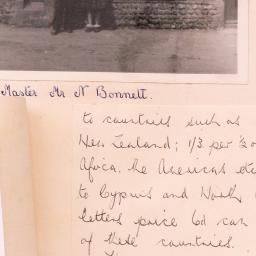 Master Mr N Bonnett.
to countries such as
New Zealand; 1/3 per ½ o
Africa, the Americas etc
to Cyprus and North
letters price 6d can
of these countries.